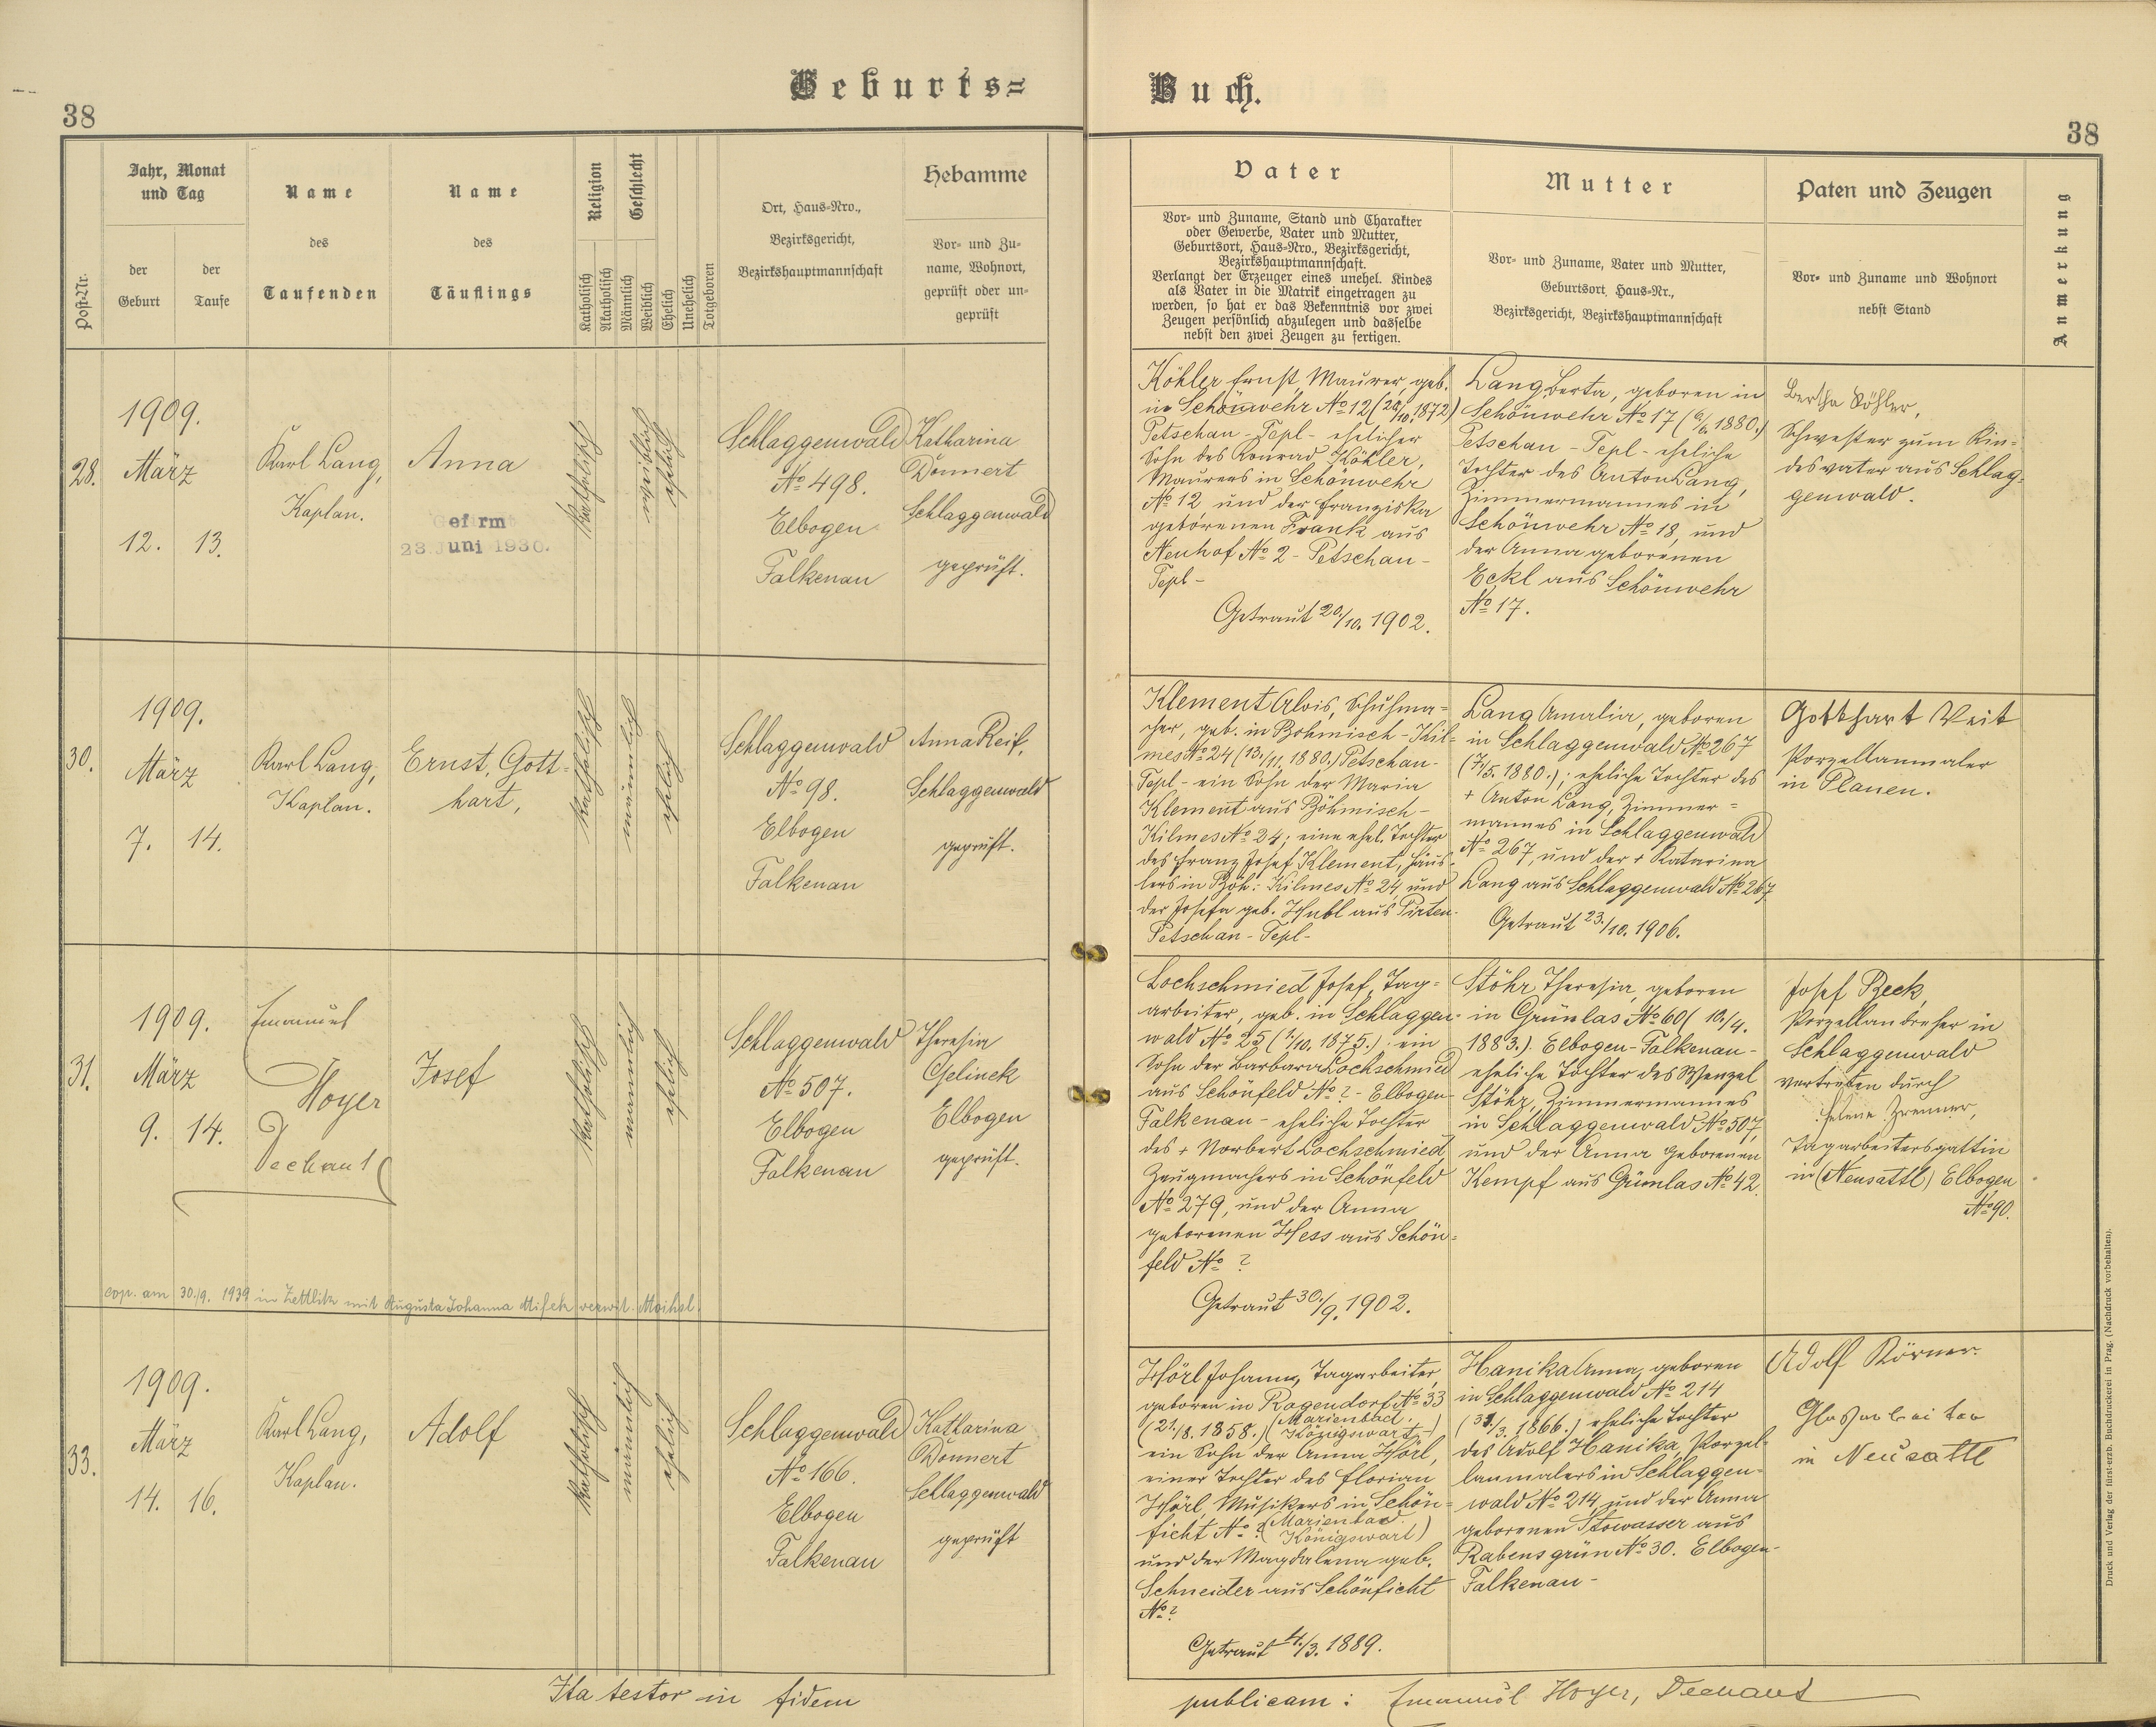 Geburts=
Buch.
38
38
Post-Nr.
Jahr, Monat
und Tag
der
Geburt
der
Taufe
Name
des
Taufenden
Name
des
Täuflings
Religion
Katholisch
Akatholisch
Geschlecht
Männlich
Weiblich
Ehelich
Unehelich
Totgeboren
Ort, Haus-Nro.,
Bezirksgericht,
Bezirkshauptmannschaft
Hebamme
Vor- und Zu-
name, Wohnort,
geprüft oder un-
geprüft
Vater
Vor- und Zuname, Stand und Charakter
oder Gewerbe, Vater und Mutter,
Geburtsort, Haus-Nro., Bezirksgericht,
Bezirkshauptmannschaft.
Verlangt der Erzeuger eines unehel. Kindes
als Vater in die Matrik eingetragen zu
werden, so hat er das Bekenntnis vor zwei
Zeugen persönlich abzulegen und dasselbe
nebst den zwei Zeugen zu fertigen.
Mutter
Vor- und Zuname, Vater und Mutter,
Geburtsort, Haus-Nr.,
Bezirksgericht, Bezirkshauptmannschaft
Paten und Zeugen
Vor- und Zuname und Wohnort
nebst Stand
Anmerkung
28.
1909.
März
12. 13.
Karl Lang,
Kaplan.
Anna
Gefirmt
23. Juni 1930.
katholisch
weiblich
ehelich
Schlaggenwald
No 498.
Elbogen
Falkenau
Katharina
Donnert
Schlaggenwald
geprüft.
Köhler Ernst, Maurer, geb.
in Schönwehr No 12 (28/10. 1872)
Petschau - Tepl - ehelicher
Sohn des Konrad Köhler,
Maurers in Schönwehr
No 12 und der Franziska
geborenen Frank aus
Neuhof No 2 - Petschau -
Tepl -
Getraut 20./10. 1902.
Lang Berta, geboren in
Schönwehr No 17 (6/6. 1880.)
Petschau - Tepl - eheliche
Tochter des Anton Lang,
Zimmermannes in
Schönwehr No 18, und
der Anna geborenen
Eckl aus Schönwehr
No 17.
Bertha Köhler,
Schwester zum Kin=
desvater aus Schlag=
genwald.
30.
1909.
März
7. 14.
Karl Lang,
Kaplan.
Ernst, Gott=
hart,
katholisch
männlich
ehelich
Schlaggenwald
No 98.
Elbogen
Falkenau
Anna Reif,
Schlaggenwald
geprüft.
Klement Alois, Schuhma=
cher, geb. in Böhmisch-Kil=
mes No 24 (13./11. 1880.) Petschau-
Tepl - ein Sohn der Maria
Klement aus Böhmisch-
Kilmes No 24; eine ehel. Tochter
des Franz Josef Klement, Häus=
lers in Böh: Kilmes No 24, und
der Josefa geb. Hubl aus Pirten-
Petschau - Tepl -
Lang Amalia, geboren
in Schlaggenwald No 267
(7/5. 1880.); eheliche Tochter des
+ Anton Lang, Zimmer=
mannes in Schlaggenwald
No 267, und der + Katarina
Lang aus Schlaggenwald No 267
Getraut 23./10. 1906.
Gotthart Veit
Porzellanmaler
in Planen.
31.
1909.
März
9. 14.
Emanuel
Hoyer
Dechant
Josef
katholisch
männlich
ehelich
Schlaggenwald
No 507.
Elbogen
Falkenau
Theresia
Gelinek
Elbogen
geprüft.
cop. am 30./9. 1939 in Zettlitz mit Augusta Johanna Misek verwit. Moihsl.
Lochschmied Josef, Tag=
arbeiter, geb. in Schlaggen=
wald No 25 (1/10. 1875.); ein
Sohn der Barbara Lochschmied
aus Schönfeld No ? - Elbogen-
Falkenau - eheliche Tochter
des + Norbert Lochschmied,
Zeugmachers in Schönfeld
No 279, und der Anna
geborenen Hess aus Schön=
feld No ?
Getraut 30./9. 1902.
Stöhr Theresia, geboren
in Grünlas No 60 (10./4.
1883.). Elbogen-Falkenau-
eheliche Tochter des Wenzel
Stöhr, Zimmermannes
in Schlaggenwald No 507,
und der Anna geborenen
Kempf aus Grünlas No 42.
Josef Beck,
Porzellandreher in
Schlaggenwald
vertreten durch
Helene Zrenner,
Tagarbeitersgattin
in (Neusattl) Elbogen
No 90.
33.
1909.
März
14. 16.
Karl Lang,
Kaplan.
Adolf
katholisch
männlich
ehelich
Schlaggenwald
No 166.
Elbogen
Falkenau
Katharina
Donnert
Schlaggenwald
geprüft
Hörl Johann, Tagarbeiter,
geboren in Rogendorf No 33
(21./8. 1858.) (Marienbad.
Königswart-)
ein Sohn der Anna Hörl,
einer Tochter des Florian
Hörl, Musikers in Schön=
ficht No ? (Marienbad.
Königswart)
und der Magdalena geb.
Schneider aus Schönficht
No ?
Getraut 4./3. 1889.
Hanika Anna, geboren
in Schlaggenwald No 214
(31./3. 1866.) eheliche Tochter
des Adolf Hanika, Porzel=
lanmalers in Schlaggen=
wald No 214, und der Anna
geborenen Stowasser aus
Rabensgrün No 30. Elbogen-
Falkenau -
Adolf Körner.
Glasarbeiter
in Neusattl
Ita testor in fidem
publicam: Emanuel Hoyer, Dechant
Druck und Verlag der fürst-erzb. Buchdruckerei in Prag. (Nachdruck vorbehalten).